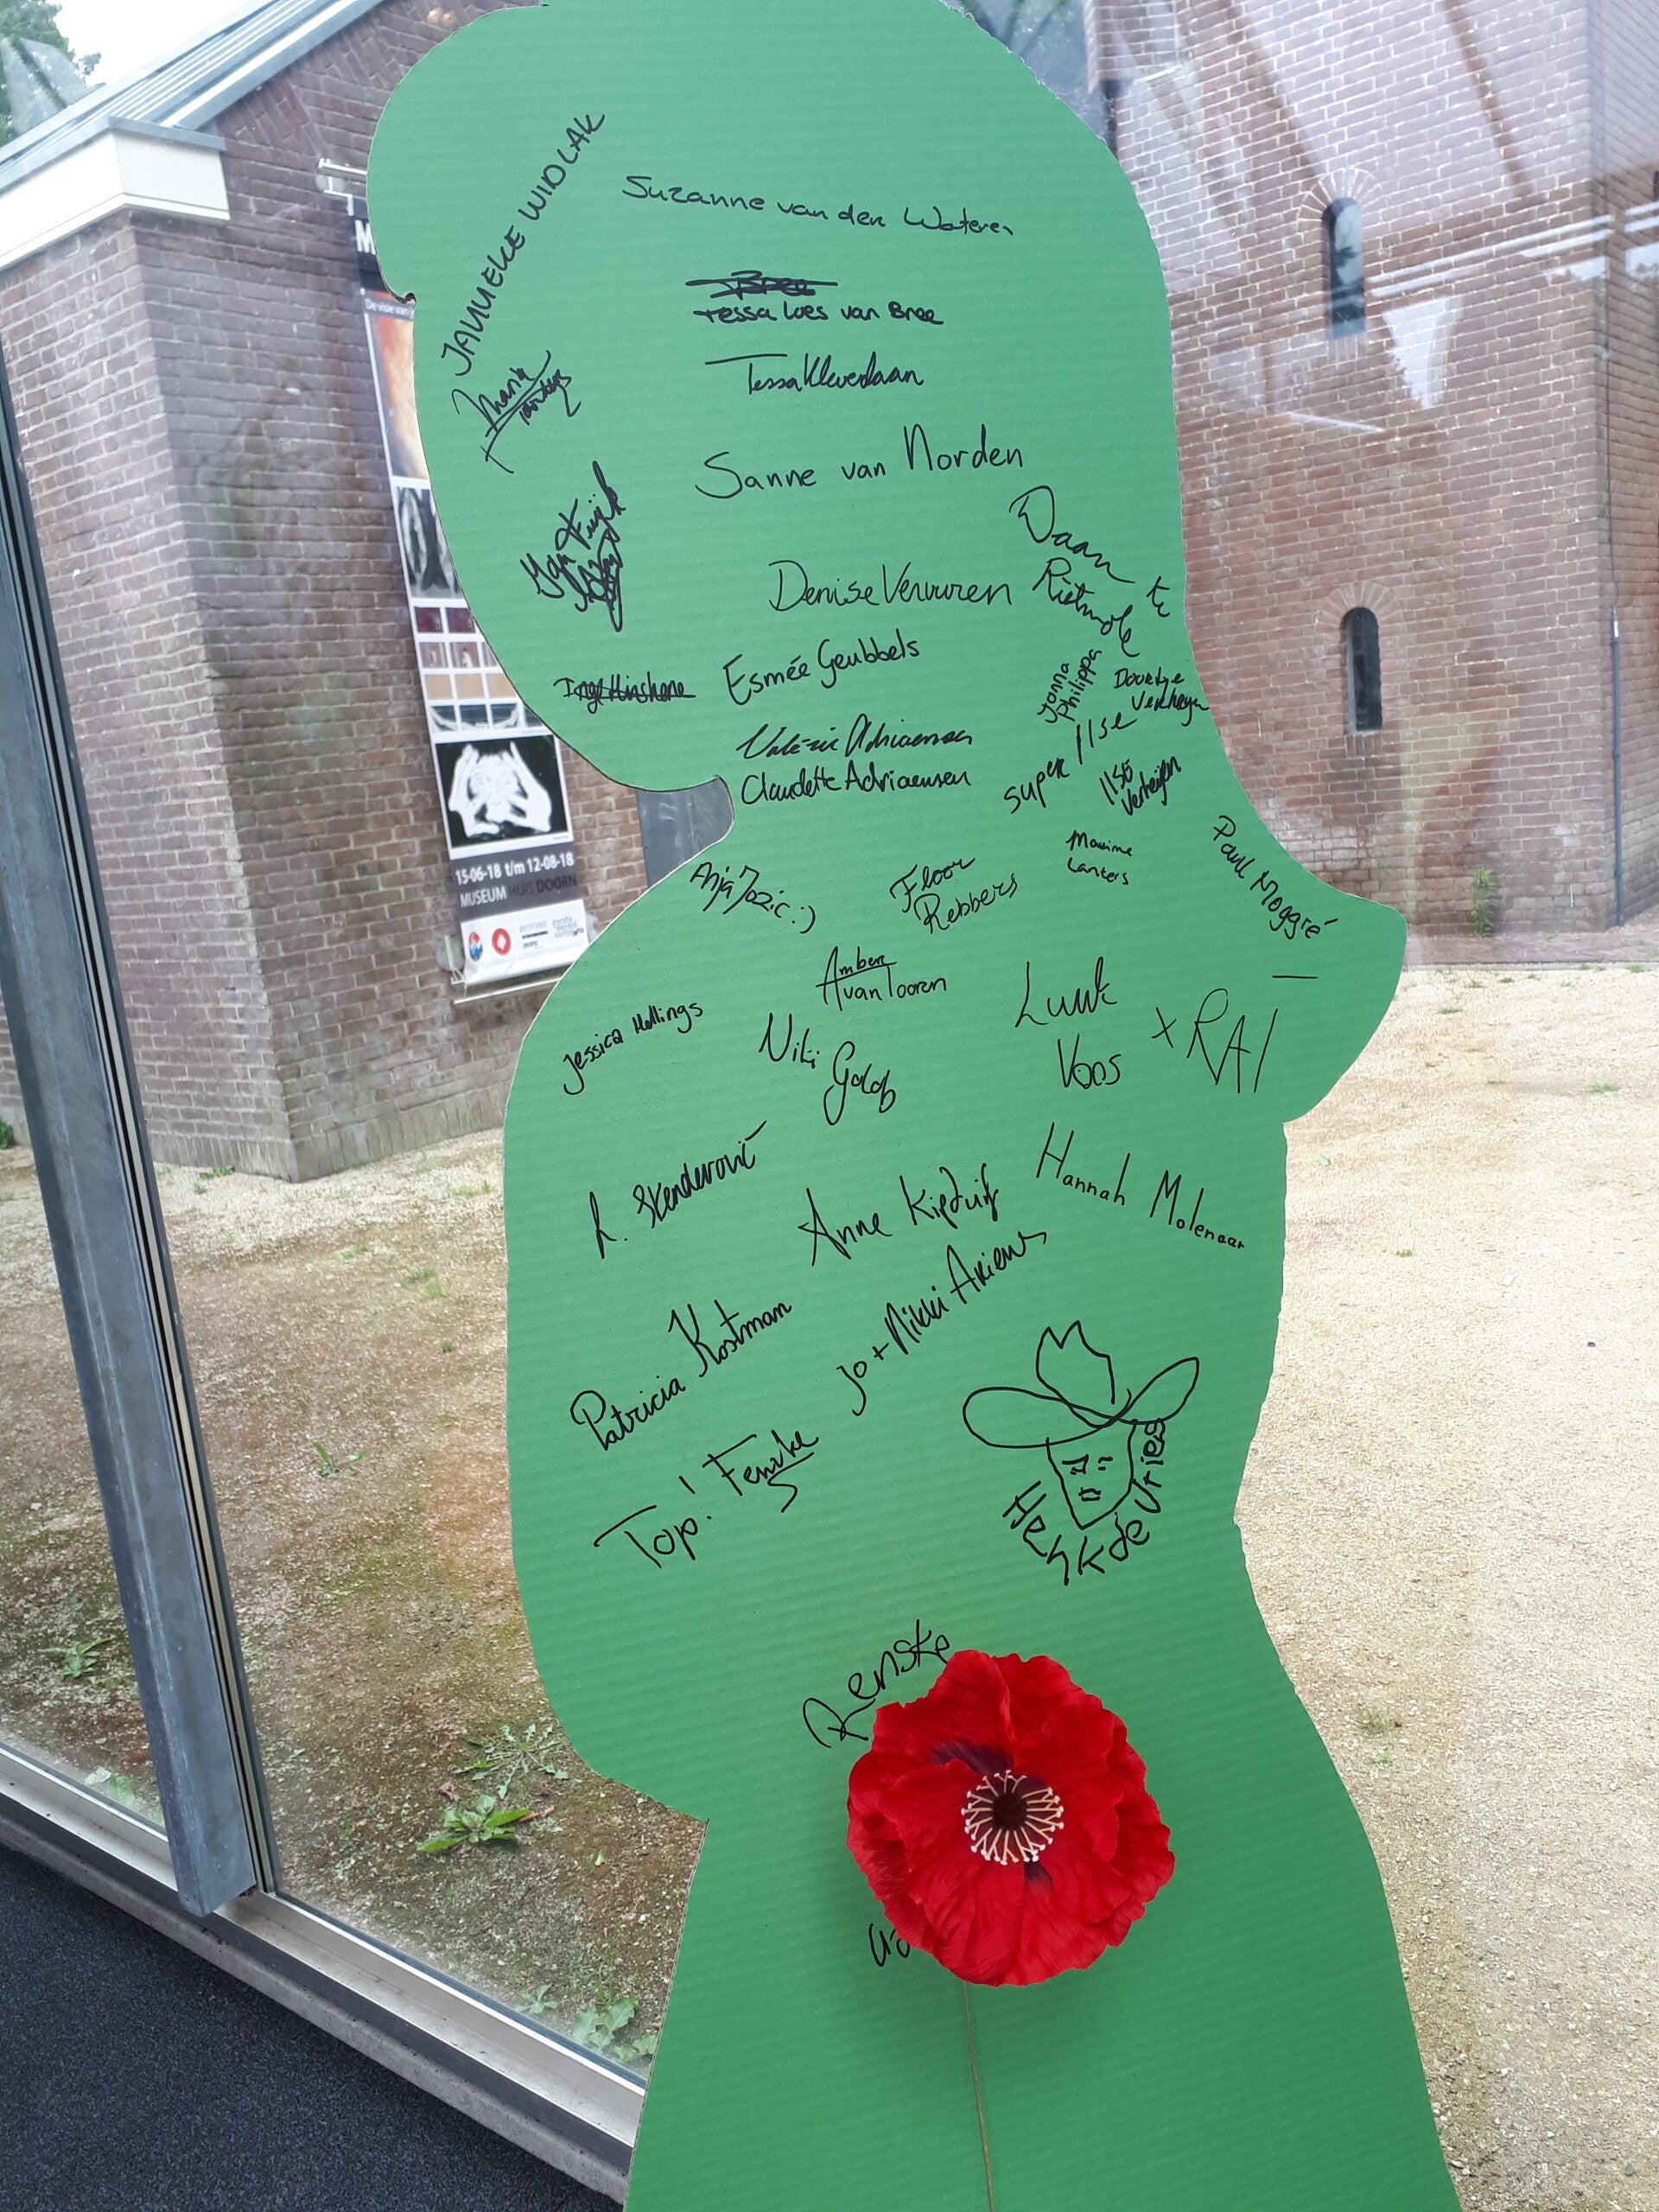 JANNEKE WIDLAK
Suzanne van den Wateren
Bree
Tessa Loes van Bree
Tessa Kleverlaan
Sanne van Norden
Daan te
Rietmole
Denise Vervuren
Esmée Geubbels
Jonna
Philippa
Valérie Adriaensen
Claudette Adriaensen
super Ilse
Ilse
Verheijen
Anja Jozic :)
Floor
Rebbers
Maxime
Lanters
Paul Moggré
Amber
van Tooren
Jessica Mellings
Niki
Golob
Luuk
Voos
x RAI
L. Skenderović
Anne
Hannah Molenaar
Patricia Kostman
Jo + Nikki Ariens
Top! Femke
Henk de Vries
Renske
15-06-18 t/m 12-08-18
MUSEUM HUIS DOORN